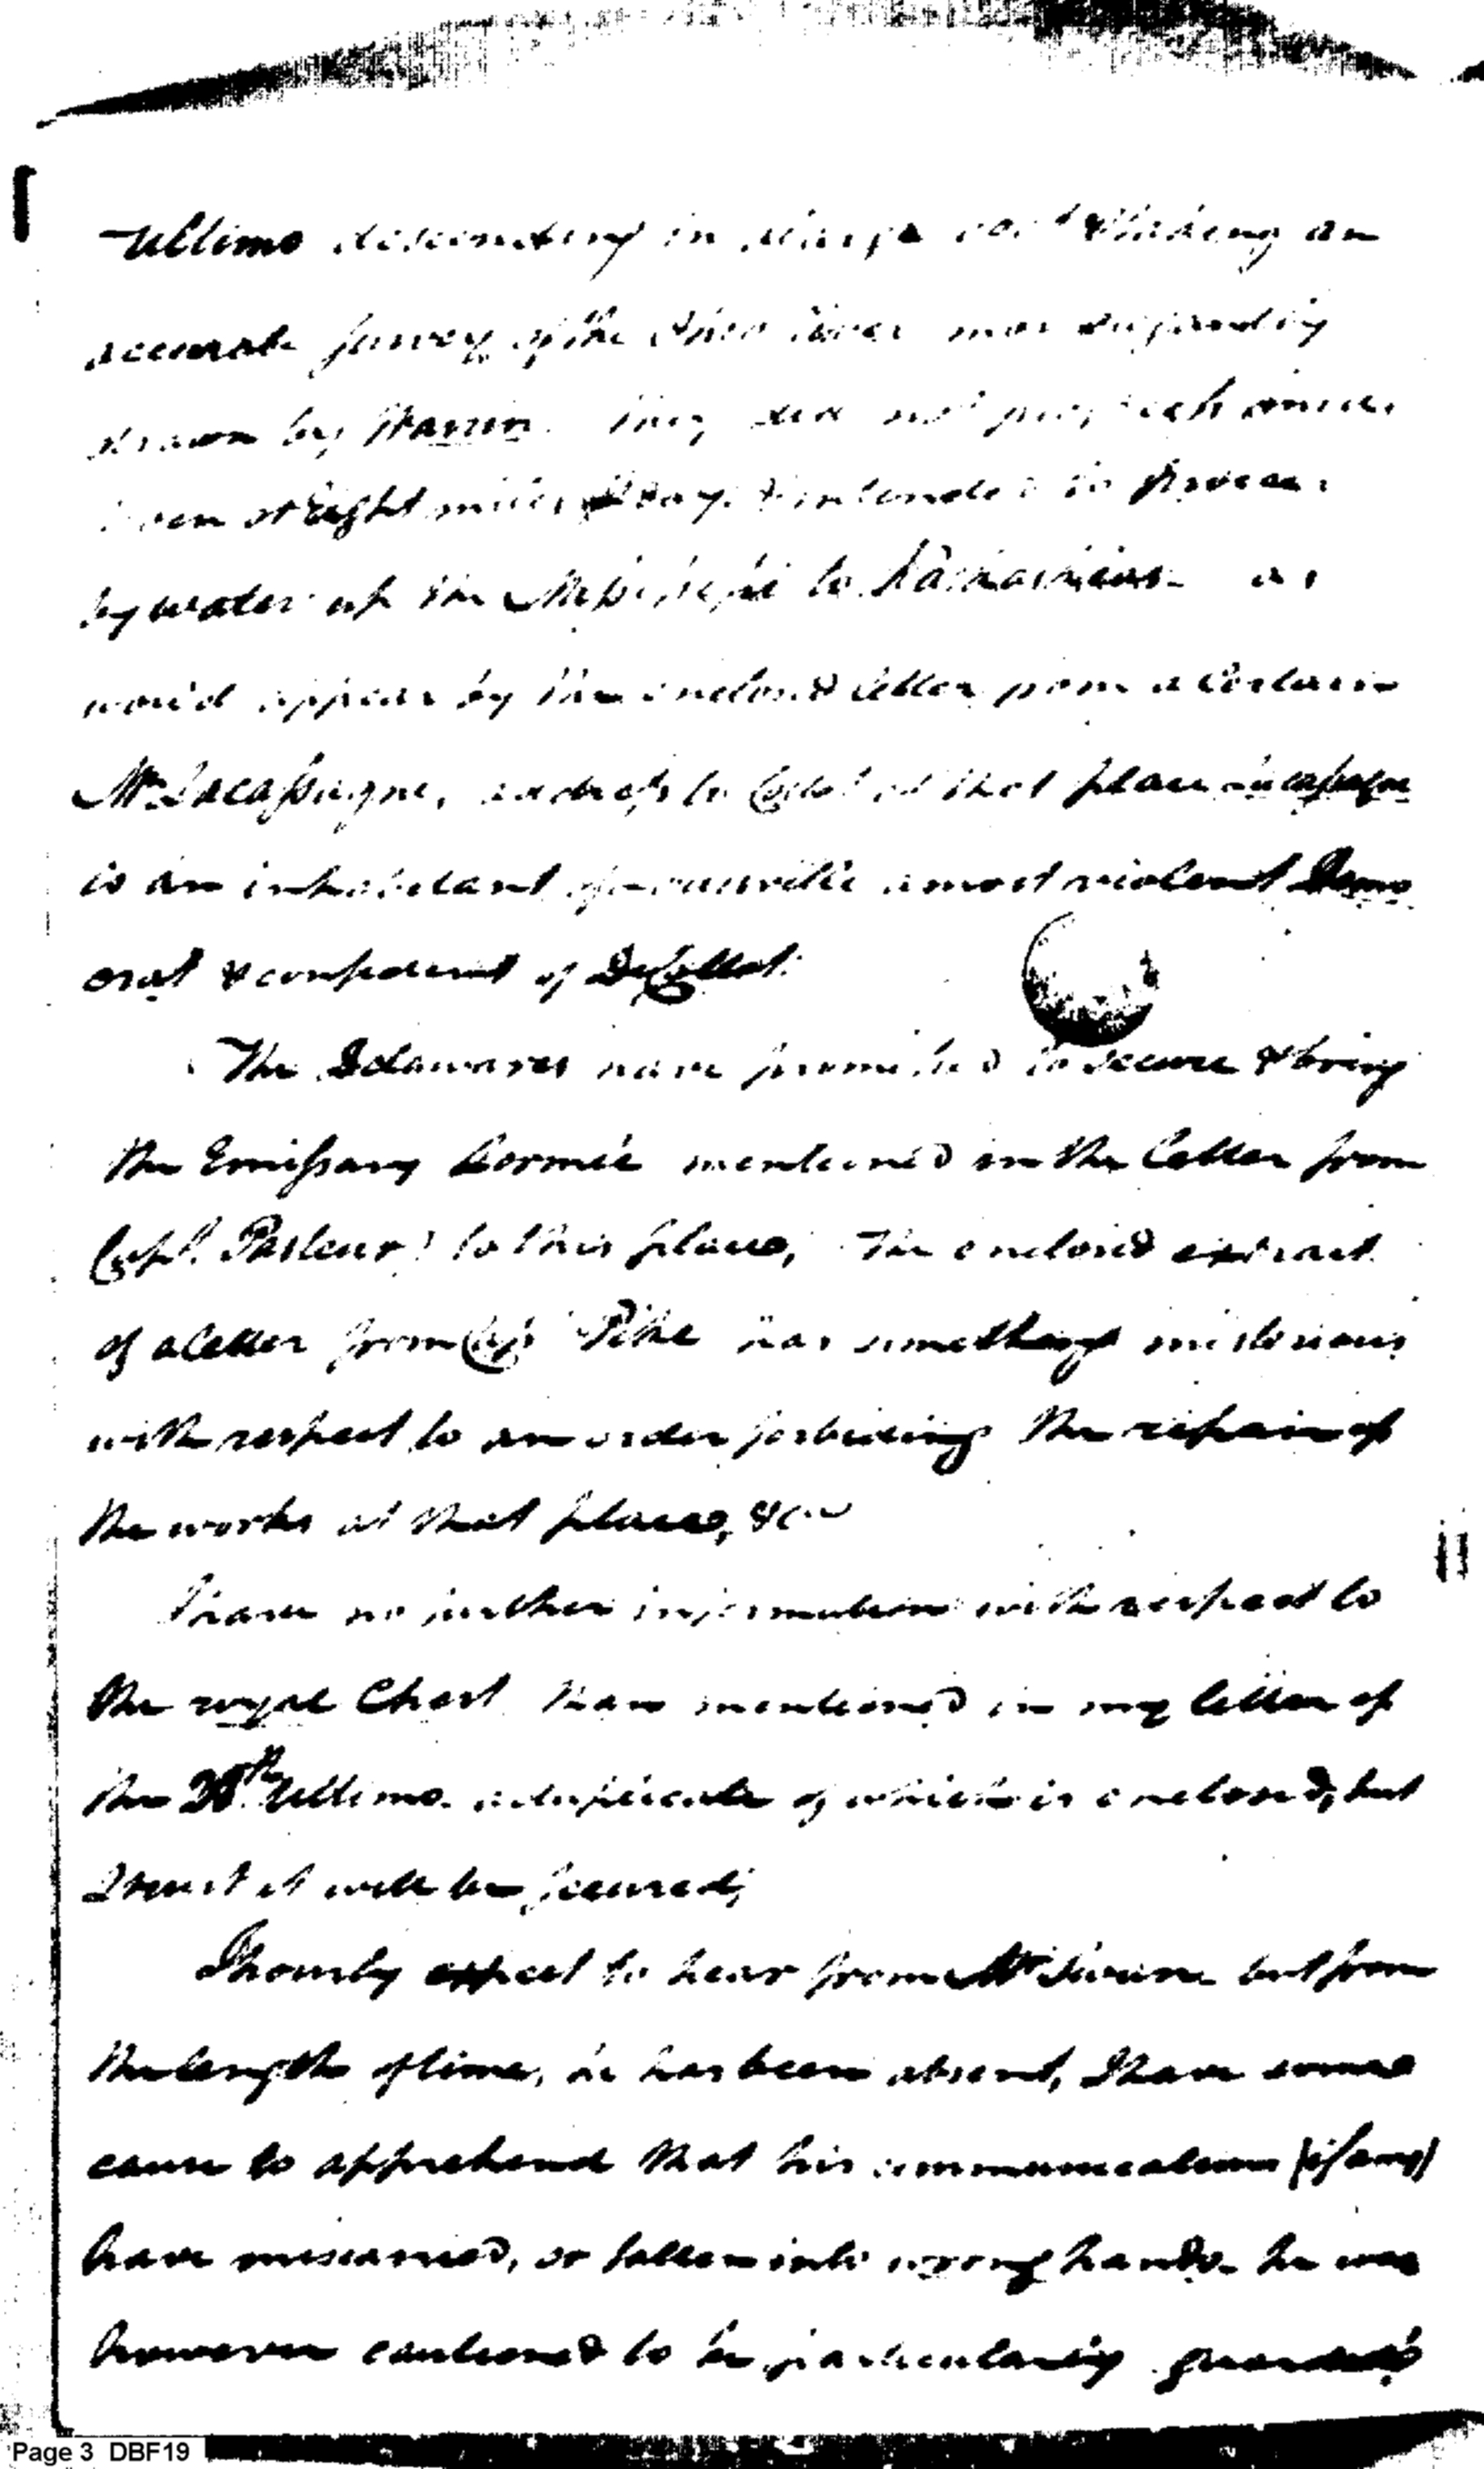 Ultimo descending in a large boat & taking an
accurate survey of the Ohio River most elegantly
drawn by Warrin. They did not progress more
seven or Eight miles day. & intended to proceed
by water up the Mississippi to Kaskaskias as
wou'd appear by the enclosed letter from a certain
Mr. Lacassagne, address to Collot at that place Lacassagne
is an inhabitant of Louisville a most violent Demo
crat & confident of De Collot.
The Delawares have promised to secure & bring
the Emissary Lormié mentioned in the letter from
Capt. Pasteur) to this place, The enclosed extract
of a letter from Capt Pike has something misterious
with respect to an order forbiding the repair of
the works at that place, &c
I have no further information with respect to
the royal Chest than mentioned in my letter of
the 28th Ultimo. a duplicate of which is enclosed, but
I trust it will be secured;
I hourly expect to hear from Mr but from
the length of time, he has been absent, I have some
cause to apprehend that his communications (if any)
have miscarried, or fallen into wrong hands he was
however cautioned to be particularly guarded
Page 3 DBF19